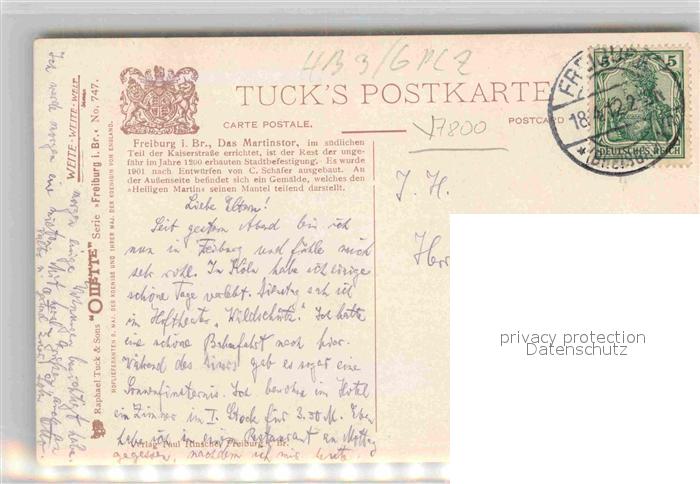 4B3/6 PLZ
TUCK'S POSTKARTE
CARTE POSTALE.
POSTCARD
V7800
FREIBURG
18.4.12.2-3N
*(BREISGAU)
5
DEUTSCHES REICH
Freiburg i. Br., Das Martinstor, im südlichen
Teil der Kaiserstraße errichtet, ist der Rest der unge-
fähr im Jahre 1200 erbauten Stadtbefestigung. Es wurde
1901 nach Entwürfen von C. Schäfer ausgebaut. An
der Außenseite befindet sich ein Gemälde, welches den
»Heiligen Martin« seinen Mantel teilend darstellt.
Liebe Eltern!
Seit gestern Abend bin ich
nun in Freiburg und fühle mich
sehr wohl. In Köln habe ich einige
schöne Tage verlebt. Dienstag sah ich
im Hoftheater „Wildschütz“. Ich hatte
eine schöne Bahnfahrt nach hier.
Während des gab es sogar eine
Sonnenfinsternis. Ich bewohne im Hotel
ein Zimmer im I. Stock für 3.50 M. Eben
habe ich in einem Restaurant am
gegessen, nachdem ich mir
Verlag Paul Hinsche, Freiburg i. Br.
J. H.
Herr
Raphael Tuck & Sons "OILETTE" Serie »Freiburg i. Br.« No. 747.
HOFLIEFERANTEN S. MAJ. DES KOENIGS UND IHRER MAJ. DER KOENIGIN VON ENGLAND.
WEITE-WEITE-WELT
Ich werde morgen
morgen einige besichtigt habe.
privacy protection
Datenschutz